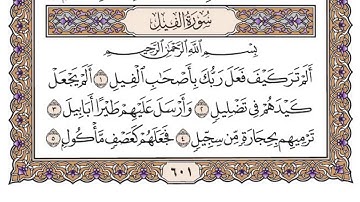 سُورَةُ الفِيلِ
بِسْمِ اللَّهِ الرَّحْمَٰنِ الرَّحِيمِ
أَلَمْ تَرَ كَيْفَ فَعَلَ رَبُّكَ بِأَصْحَٰبِ ٱلْفِيلِ ١ أَلَمْ يَجْعَلْ
كَيْدَهُمْ فِي تَضْلِيلٍ ٢ وَأَرْسَلَ عَلَيْهِمْ طَيْرًا أَبَابِيلَ ٣
تَرْمِيهِم بِحِجَارَةٍ مِّن سِجِّيلٍ ٤ فَجَعَلَهُمْ كَعَصْفٍ مَّأْكُولٍ ٥
٦٠١